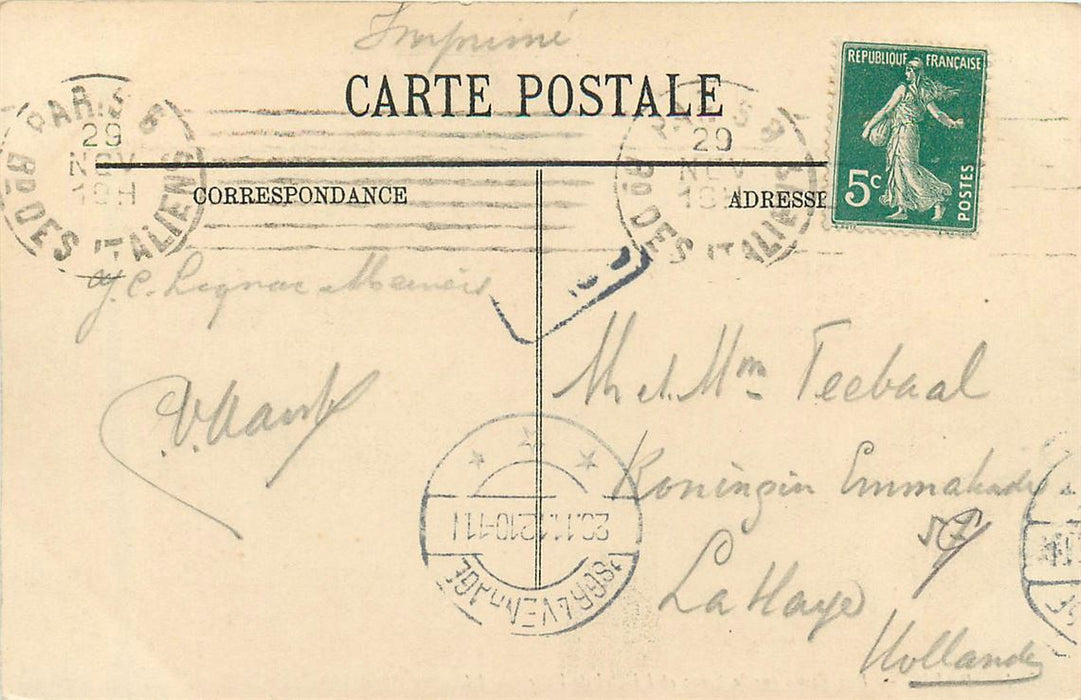 Imprimé
CARTE POSTALE
PARIS 6
29
NOV
19H
Bd DES ITALIENS
29
NOV
Bd DES ITALIENS
REPUBLIQUE FRANÇAISE
5c
POSTES
CORRESPONDANCE
ADRESSE
M et Mm Teebaal
Koningin Emmakade
57
La Haye
Hollande
'S GRAVENHAGE